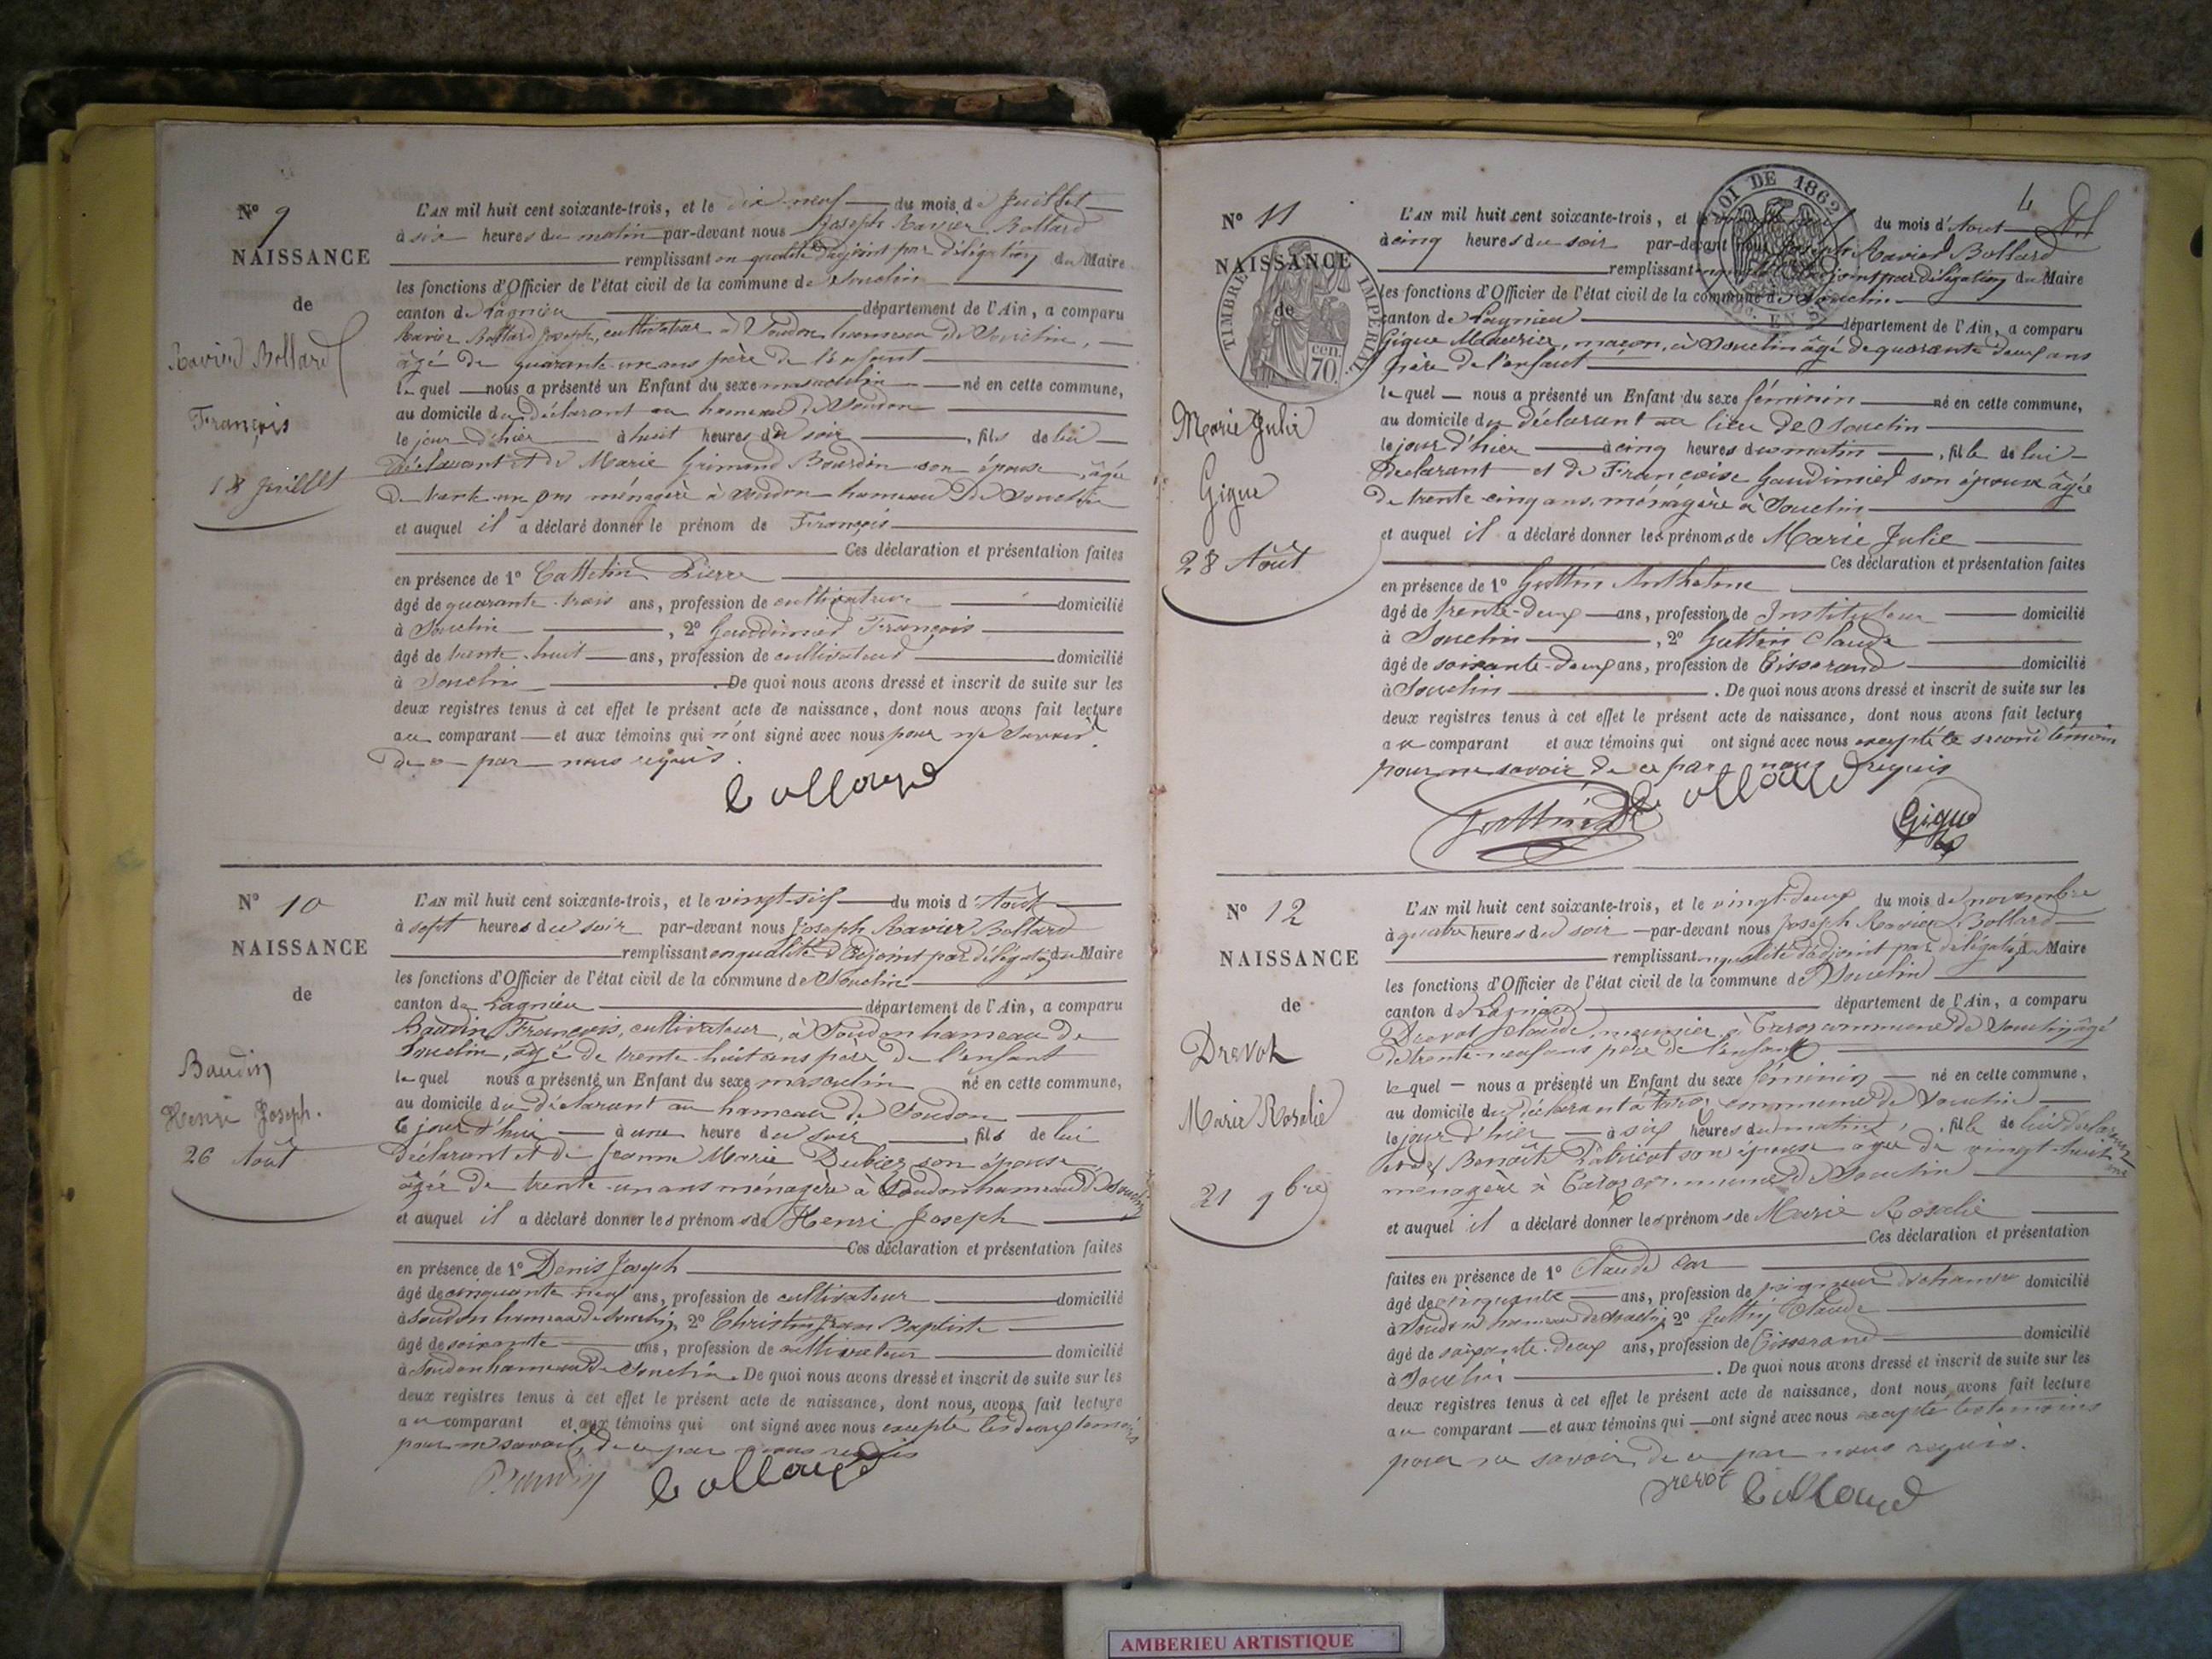 N° 9
NAISSANCE
de
Ravier Bollard
François
18 Juillet
L'AN mil huit cent soixante-trois, et le dix neuf du mois de Juillet
à six heures du matin par-devant nous Joseph Ravier Bollard
remplissant en qualité d'adjoint par délégation du Maire
les fonctions d'Officier de l'état civil de la commune de Souclin
canton de Lagnieu département de l'Ain, a comparu
Ravier Bollard Joseph, cultivateur à Soudon hameau de Souclin,
âgé de quarante un ans père de l'enfant
lequel nous a présenté un Enfant du sexe masculin né en cette commune,
au domicile du déclarant au hameau de Soudon
le jour d'hier à huit heures du soir, fils de lui
déclarant et de Marie Grimand Bourdin son épouse, âgée
de trente un ans ménagère à Soudon hameau de Souclin
et auquel il a déclaré donner le prénom de François
Ces déclaration et présentation faites
en présence de 1° Cattelin Pierre
âgé de quarante trois ans, profession de cultivateur domicilié
à Souclin, 2° Gaudimier François
âgé de trente huit ans, profession de cultivateur domicilié
à Souclin. De quoi nous avons dressé et inscrit de suite sur les
deux registres tenus à cet effet le présent acte de naissance, dont nous avons fait lecture
au comparant et aux témoins qui n'ont signé avec nous pour ne savoir
de ce par nous requis.
N° 10
NAISSANCE
de
Baudin
Henri Joseph.
26 Août
L'AN mil huit cent soixante-trois, et le vingt-six du mois d'Août
à sept heures du soir par-devant nous Joseph Ravier Bollard
remplissant en qualité d'adjoint par délégation du Maire
les fonctions d'Officier de l'état civil de la commune de Souclin
canton de Lagnieu département de l'Ain, a comparu
Baudin François, cultivateur, à Soudon hameau de
Souclin, âgé de trente huit ans père de l'enfant
lequel nous a présenté un Enfant du sexe masculin né en cette commune,
au domicile du déclarant au hameau de Soudon
le jour d'hui à une heure du soir, fils de lui
déclarant et de Jeanne Marie Dubiez son épouse
âgée de trente un ans ménagère à Soudon hameau de Souclin
et auquel il a déclaré donner les prénoms de Henri Joseph
Ces déclaration et présentation faites
en présence de 1° Denis Joseph
âgé de cinquante neuf ans, profession de cultivateur domicilié
à Soudon hameau de Souclin, 2° Christin Jean Baptiste
âgé de soixante ans, profession de cultivateur domicilié
à Soudon hameau de Souclin. De quoi nous avons dressé et inscrit de suite sur les
deux registres tenus à cet effet le présent acte de naissance, dont nous avons fait lecture
au comparant et aux témoins qui ont signé avec nous excepté les deux témoins
pour ne savoir, de ce par nous requis
Baudin
4
LOI DE 1862
N° 11
NAISSANCE
de
TIMBRE IMPÉRIAL
70 cen.
Marie Julie
Gigue
28 Août
L'AN mil huit cent soixante-trois, et le du mois d'Août
à cinq heures du soir par-devant nous Joseph Ravier Bollard
remplissant en qualité d'adjoint par délégation du Maire
les fonctions d'Officier de l'état civil de la commune de Souclin
canton de Lagnieu département de l'Ain, a comparu
Gigue Maurier, maçon, à Souclin âgé de quarante deux ans
père de l'enfant
lequel nous a présenté un Enfant du sexe féminin né en cette commune,
au domicile du déclarant au lieu de Souclin
le jour d'hier à cinq heures du matin, fille de lui
déclarant et de Françoise Gaudimier son épouse âgée
de trente cinq ans, ménagère à Souclin
et auquel il a déclaré donner les prénoms de Marie Julie
Ces déclaration et présentation faites
en présence de 1° Guttin Anthelme
âgé de trente-deux ans, profession de Instituteur domicilié
à Souclin, 2° Guttin Claude
âgé de soixante-deux ans, profession de Tisserand domicilié
à Souclin. De quoi nous avons dressé et inscrit de suite sur les
deux registres tenus à cet effet le présent acte de naissance, dont nous avons fait lecture
au comparant et aux témoins qui ont signé avec nous excepté le second témoin
pour ne savoir de ce par nous requis
Guttin
Gigue
N° 12
NAISSANCE
de
Drevot
Marie Rosalie
21 9bre
L'AN mil huit cent soixante-trois, et le vingt-deux du mois de novembre
à quatre heures du soir par-devant nous Joseph Ravier Bollard
remplissant en qualité d'adjoint par délégation du Maire
les fonctions d'Officier de l'état civil de la commune de Souclin
canton de Lagnieu département de l'Ain, a comparu
Drevot Claude, meunier, à commune de Souclin âgé
de trente-neuf ans père de l'enfant
lequel nous a présenté un Enfant du sexe féminin né en cette commune,
au domicile du déclarant à commune de Souclin
le jour d'hier à six heures du matin, fille de lui déclarant
et de Benoite son épouse agée de vingt-huit ans
ménagère à commune de Souclin
et auquel il a déclaré donner les prénoms de Marie Rosalie
Ces déclaration et présentation
faites en présence de 1° Claude
âgé de cinquante ans, profession de peigneur de chanvre domicilié
à Soudon hameau de Souclin, 2° Guttin Claude
âgé de soixante-deux ans, profession de Tisserand domicilié
à Souclin. De quoi nous avons dressé et inscrit de suite sur les
deux registres tenus à cet effet le présent acte de naissance, dont nous avons fait lecture
au comparant et aux témoins qui ont signé avec nous excepté les témoins
pour ne savoir, de ce par nous requis.
Drevot
AMBERIEU ARTISTIQUE